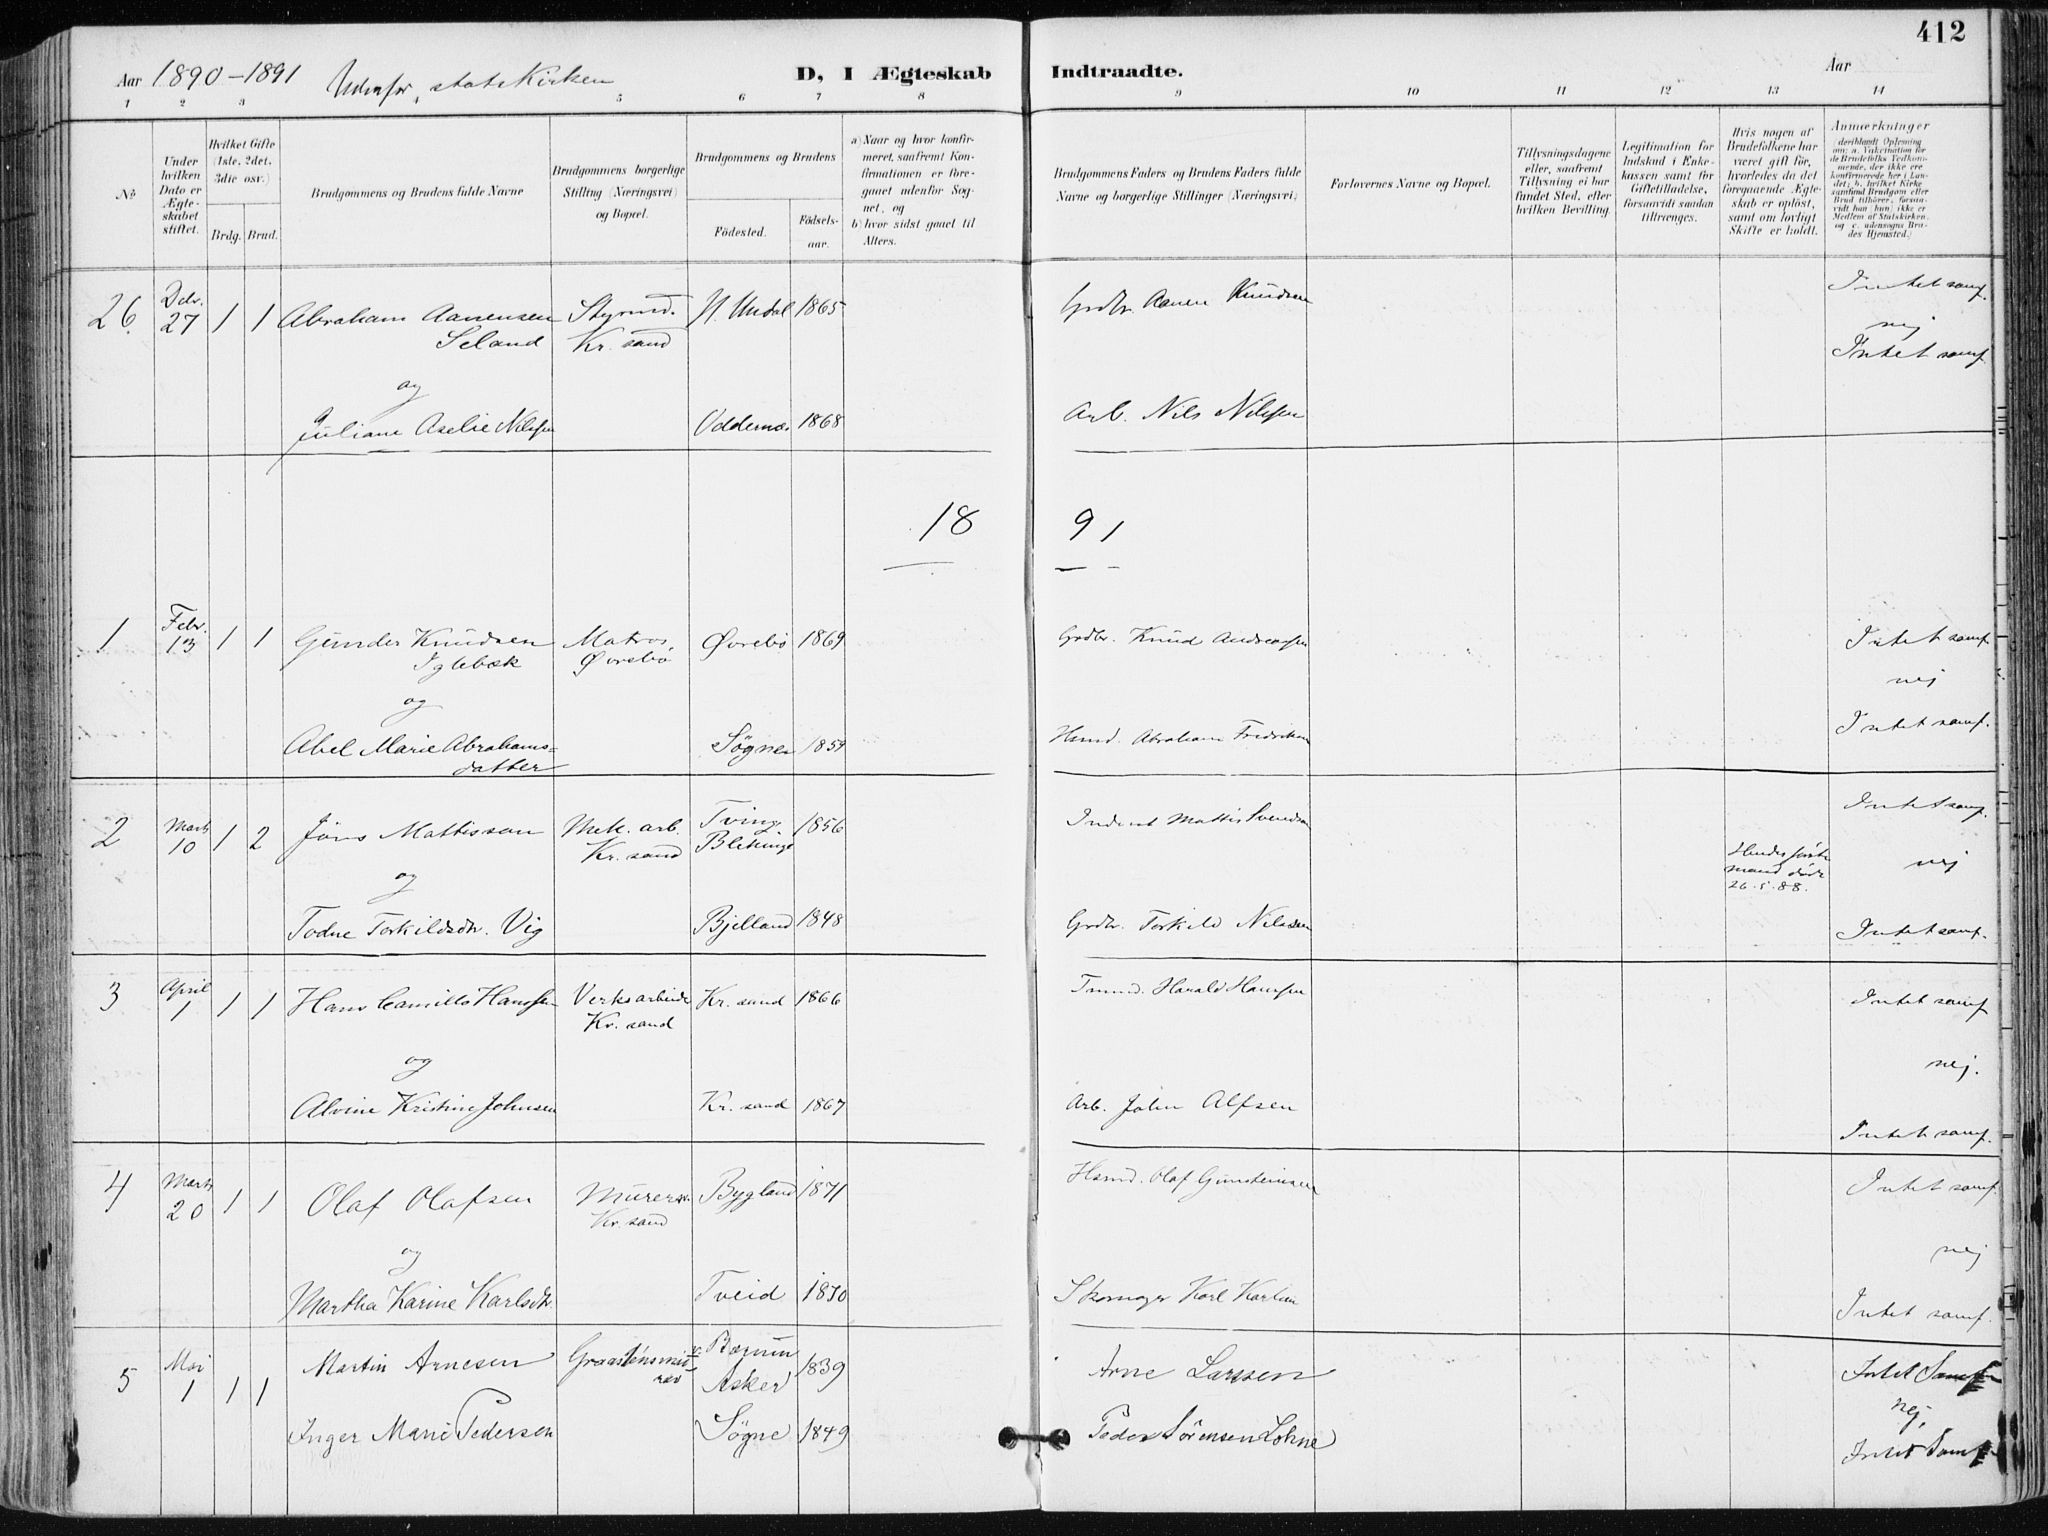 412
Aar 1890-1891 Udenfor statskirken D, I Ægteskab Indtraadte. Aar
1 2 3 4 5 6 7 8 9 10 11 12 13 14
No
Under hvilken Dato er Ægteskabet stiftet.
Hvilket Gifte (1ste, 2det, 3die osv.)
Brdg. Brud.
Brudgommens og Brudens fulde Navne
Brudgommens borgerlige Stilling (Næringsvei) og Bopæl.
Brudgommens og Brudens
Fødested. Fødselsaar.
a) Naar og hvor konfirmeret, saafremt Konfirmationen er foregaaet udenfor Sognet, og
b) hvor sidst gaaet til Alters.
Brudgommens Faders og Brudens Faders fulde Navne og borgerlige Stillinger (Næringsvei)
Forlovernes Navne og Bopæl.
Tillysningsdagene eller, saafremt Tillysning ei har fundet Sted, efter hvilken Bevilling.
Legitimation for Indskud i Enkekassen samt for Giftetilladelse, forsaavidt saadan tiltrænges.
Hvis nogen af Brudefolkene har været gift før, hvorledes da det foregaaende Ægteskab er opløst, samt om lovligt Skifte er holdt.
Anmærkninger
(deriblandt Oplysning om: a. Vakcination for de Brudefolks Vedkommende, der ikke ere konfirmerede her i Landet; b. hvilket Kirkesamfund Brudgom eller Brud tilhører, forsaavidt han (hun) ikke er Medlem af Statskirken, og c. udensogns Brudes Hjemsted.)
26. Decbr. 27 1 1 Abraham Aanensen Seland Styrmd. Kr. sand N. Undal 1865 Grdbr. Aanen Knudsen Intet samf.
nej
Intet samf.
og
Juliane Aselie Nilssen Oddernæs 1868 Arb. Nils Nilssen
18 91
1 Febr. 13 1 1 Gunder Knudsen Iglebæk Matros, Øvrebø Øvrebø 1869 Grdbr. Knud Andreassen Intet samf.
og nej
Abel Marie Abrahams=datter Søgne 1859 Husmd. Abraham Fredriksen Intet samf.
2 Marts 10 1 2 Jöns Mattisson Mek. arb. Kr. sand Tving Blekinge 1856 Mattis Svendsen Intet samf.
og Hendes første mand døde 26.5.88. nej
Todne Torkildsdtr. Vig Bjelland 1848 Grdbr. Torkild Nilssen Intet samf.
3 April 1 1 1 Hans Camillo Hanssen Verksarbeider Kr. sand Kr. sand 1866 Tmmd. Harald Hanssen Intet samf
og nej.
Alvine Kristine Johnsen Kr. sand 1867 Arb. John Alfsen Intet samf.
4 Marts 20 1 1 Olaf Olafsen Murersv. Kr. sand Bygland 1871 Husmd. Olaf Gunsteinsen Intet samf.
og nej
Martha Karine Karlsdtr. Tveid 1870 Skomager Karl Karlsen Intet samf.
5 Mai 1 1 1 Martin Arnesen Bærum Asker 1839 Arne Larssen Intet Samf
nej,
Inger Marie Pedersen Søgne 1849 Peder Sörensen Lohne Intet Samf